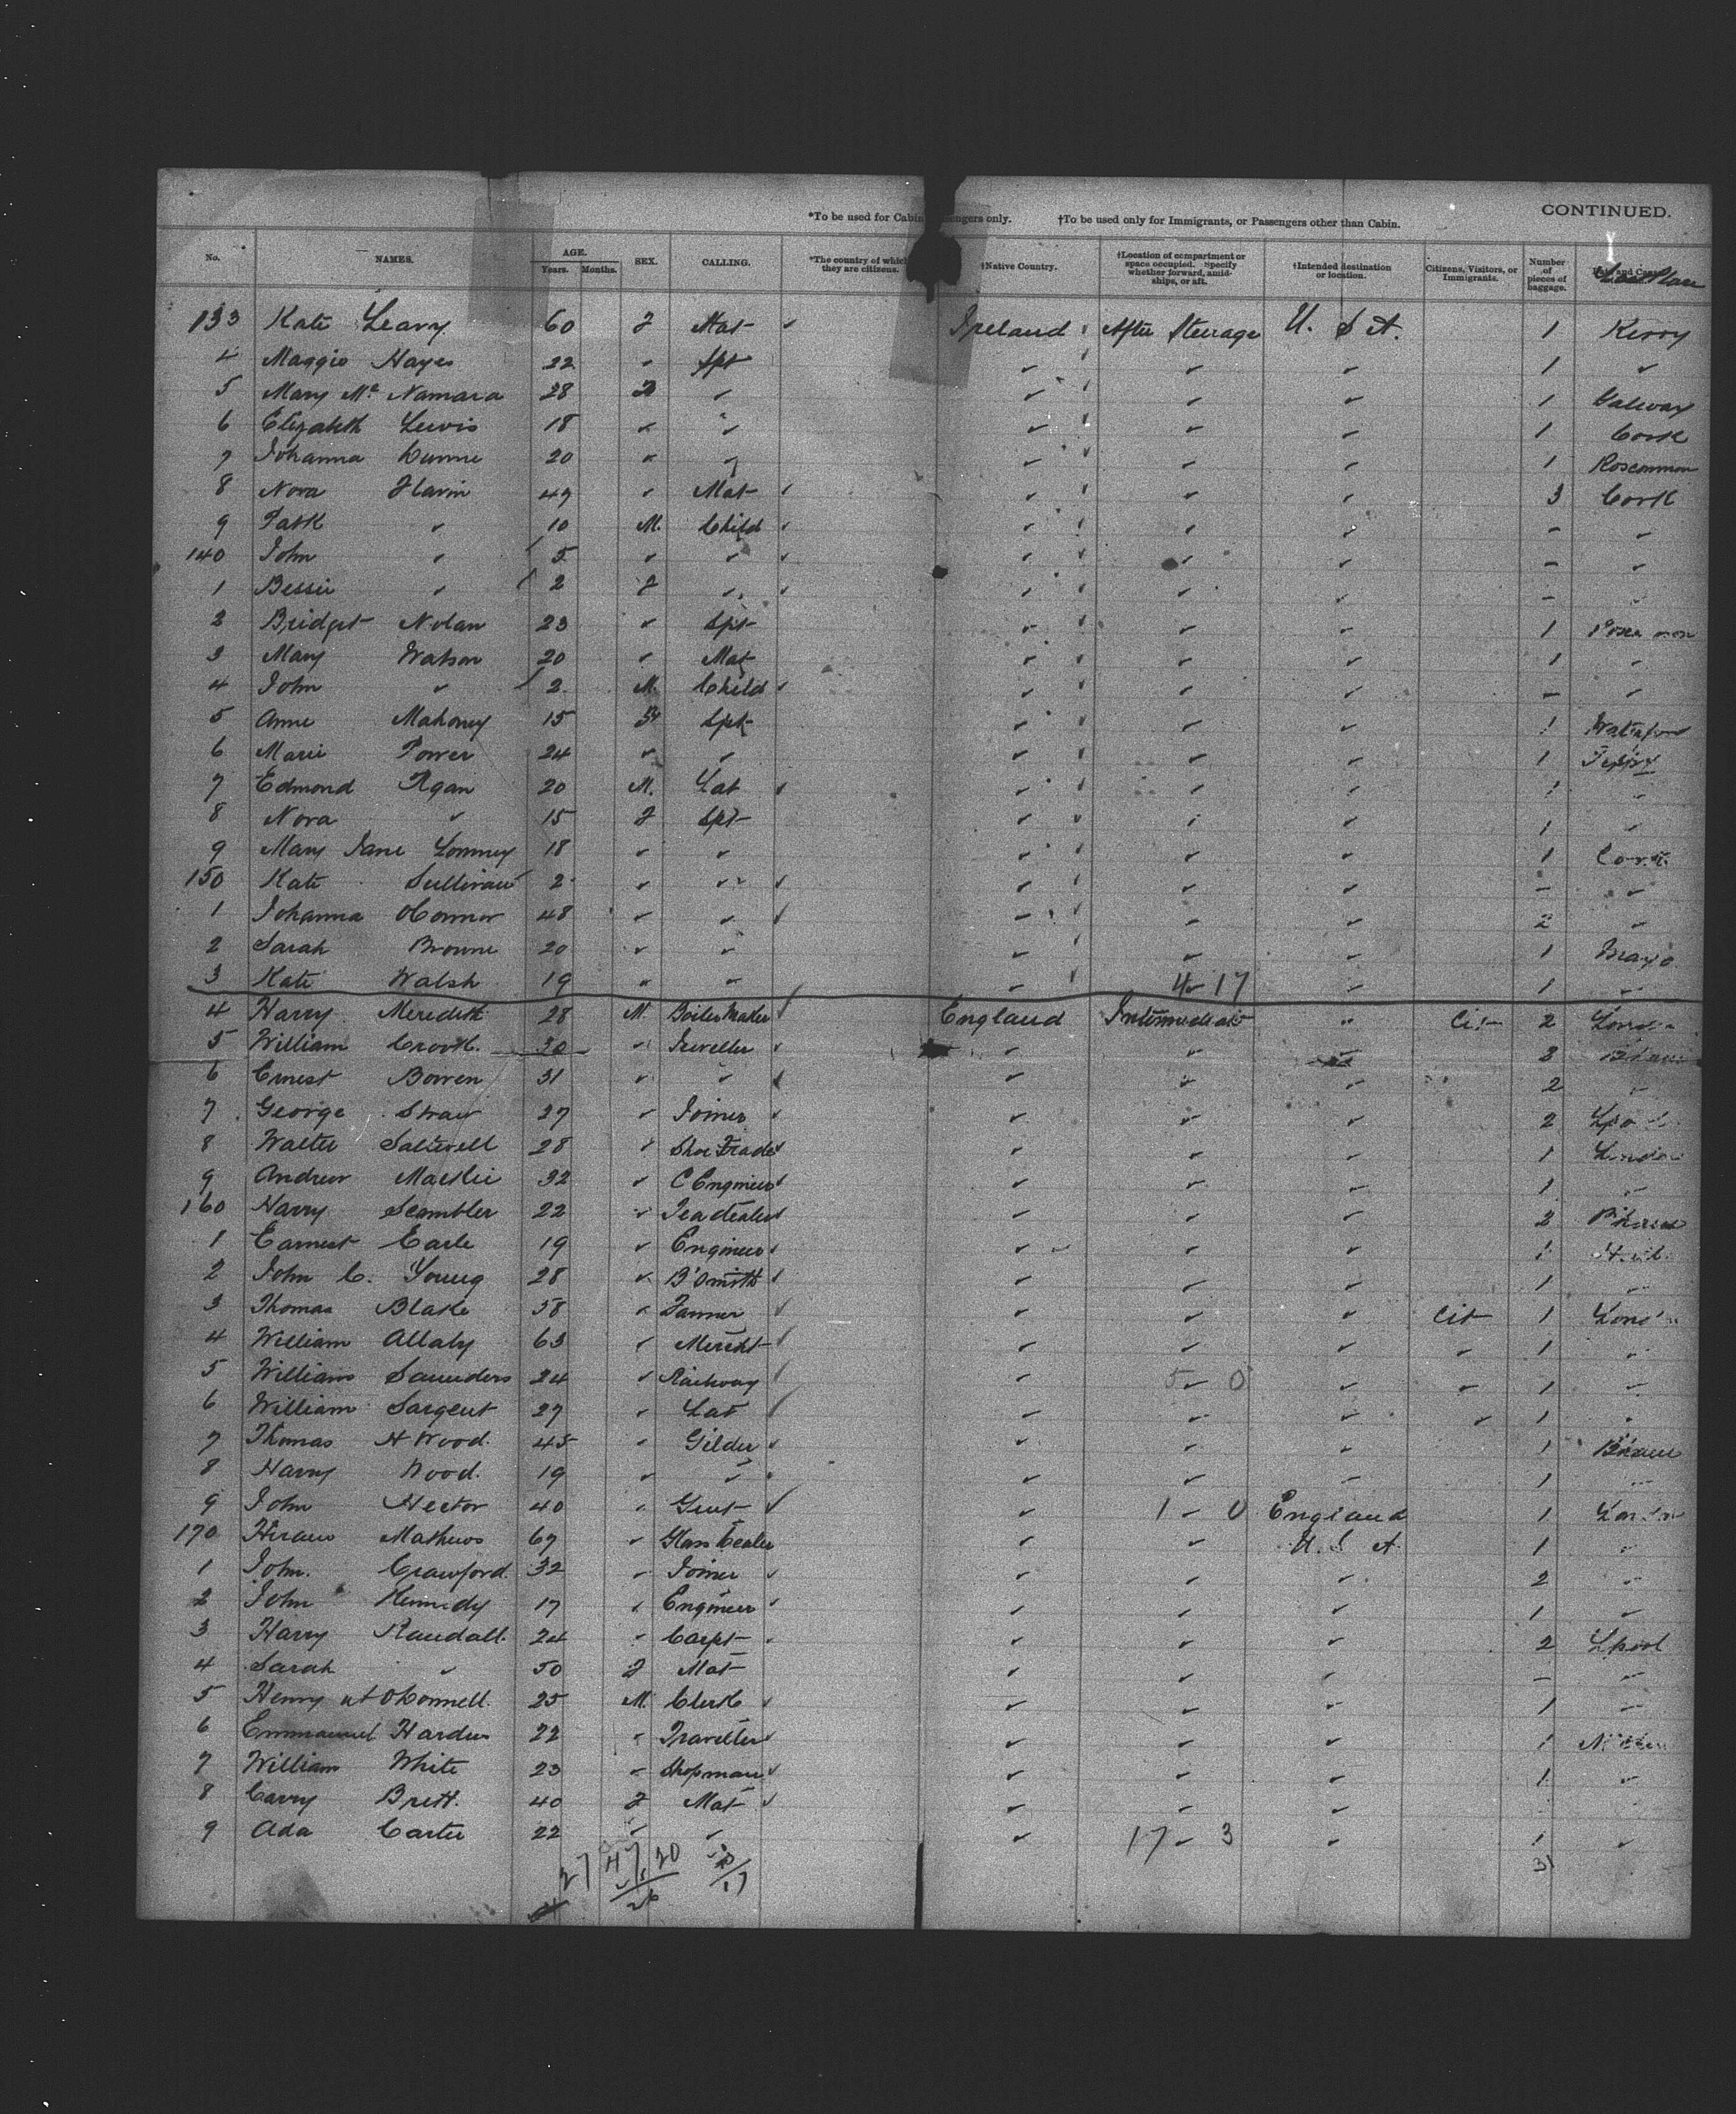 CONTINUED.
*To be used for Cabin Passengers only. †To be used only for Immigrants, or Passengers other than Cabin.
No. NAMES. AGE. Years. Months. SEX. CALLING. *The country of which they are citizens. †Native Country. †Location of compartment or space occupied. Specify whether forward, amidships, or aft. †Intended destination or location. Citizens, Visitors, or Immigrants. Number of pieces of baggage. Last Place
133 Kate Leary 60 F Mat Ireland After Steerage U. S A. 1 Kerry
4 Maggie Hayes 22 " Spt " " " 1 "
5 Mary Mc Namara 28 " " " " 1 Galway
6 Elizabeth Lewis 18 " " " " " 1 Cork
7 Johanna Dunne 20 " " " " " 1 Roscommon
8 Nora Flavin 47 " Mat " " " 3 Cork
9 Patk " 10 M. Child " " " - "
140 John " 5 " " " " " - "
1 Bessie " 2 F " " " " - "
2 Bridget Nolan 23 " Spt " " " 1
3 Mary Watson 20 " Mat " " " 1 "
4 John " 2 M. Child " " " - "
5 Anne Mahoney 15 F Spt " " " 1 Waterford
6 Marie Power 24 " " " " " 1 Tippy
7 Edmond Ryan 20 M. Lab " " " 1 "
8 Nora " 15 F Spt " " " 1 "
9 Mary Jane Lommey 18 " " " " " 1 Cork
150 Kate Sullivan 2 " " " " " - "
1 Johanna OConnor 48 " " " " " 2 "
2 Sarah Browne 20 " " " " " 1 Mayo
3 Kate Walsh 19 " " " 4 - 17 " 1 "
4 Harry Meredith 28 M. Boiler Maker England Intermediate " Cit 2 London
5 William Crook. 30 " Jeweller " " " 3 B'ham
6 Ernest Bowen 31 " " " " " 2 "
7 George Shaw 27 " Joiner " " " 2 Lpool
8 Walter Saltwell 28 " Shoe Trade " " " 1 London
9 Andrew 32 " C Engineer " " " 1 "
160 Harry Scambler 22 " Tea dealer " " " 2 B'ham
1 Earnest Earle 19 " Engineer " " " 1
2 John C. Young 28 " B'Smith " " " 1 "
3 Thomas Blake 58 " Farmer " " " Cit 1 London
4 William Allaby 63 " Mercht " " " " 1 "
5 William Saunders 24 " Railway " 5 - 0 " " 1 "
6 William Sargent 27 " Lab " " " " 1 "
7 Thomas H Wood. 45 " Gilder " " " 1 B'ham
8 Harry Wood. 19 " " " " " 1 "
9 John Hector 40 " Gent " 1 - 0 England 1 London
170 Hiram Mathews 67 " Glass Dealer " " U. S A 1 "
1 John. Crawford. 32 " Joiner " " " 2 "
2 John Kennedy 17 " Engineer " " " 1 "
3 Harry Randall. 24 " Carpt " " " 2 Lpool
4 Sarah " 50 F Mat " " " - "
5 Henry OConnell. 25 M. Clerk " " " 1 "
6 Emmanuel Harden 22 " Traveller " " " 1
7 William White 23 " Shopman " " " 1 "
8 Carry Brett. 40 F Mat " " "
9 Ada Carter 22 " " " 17 - 3 " 1 "
27 47 20
26 17